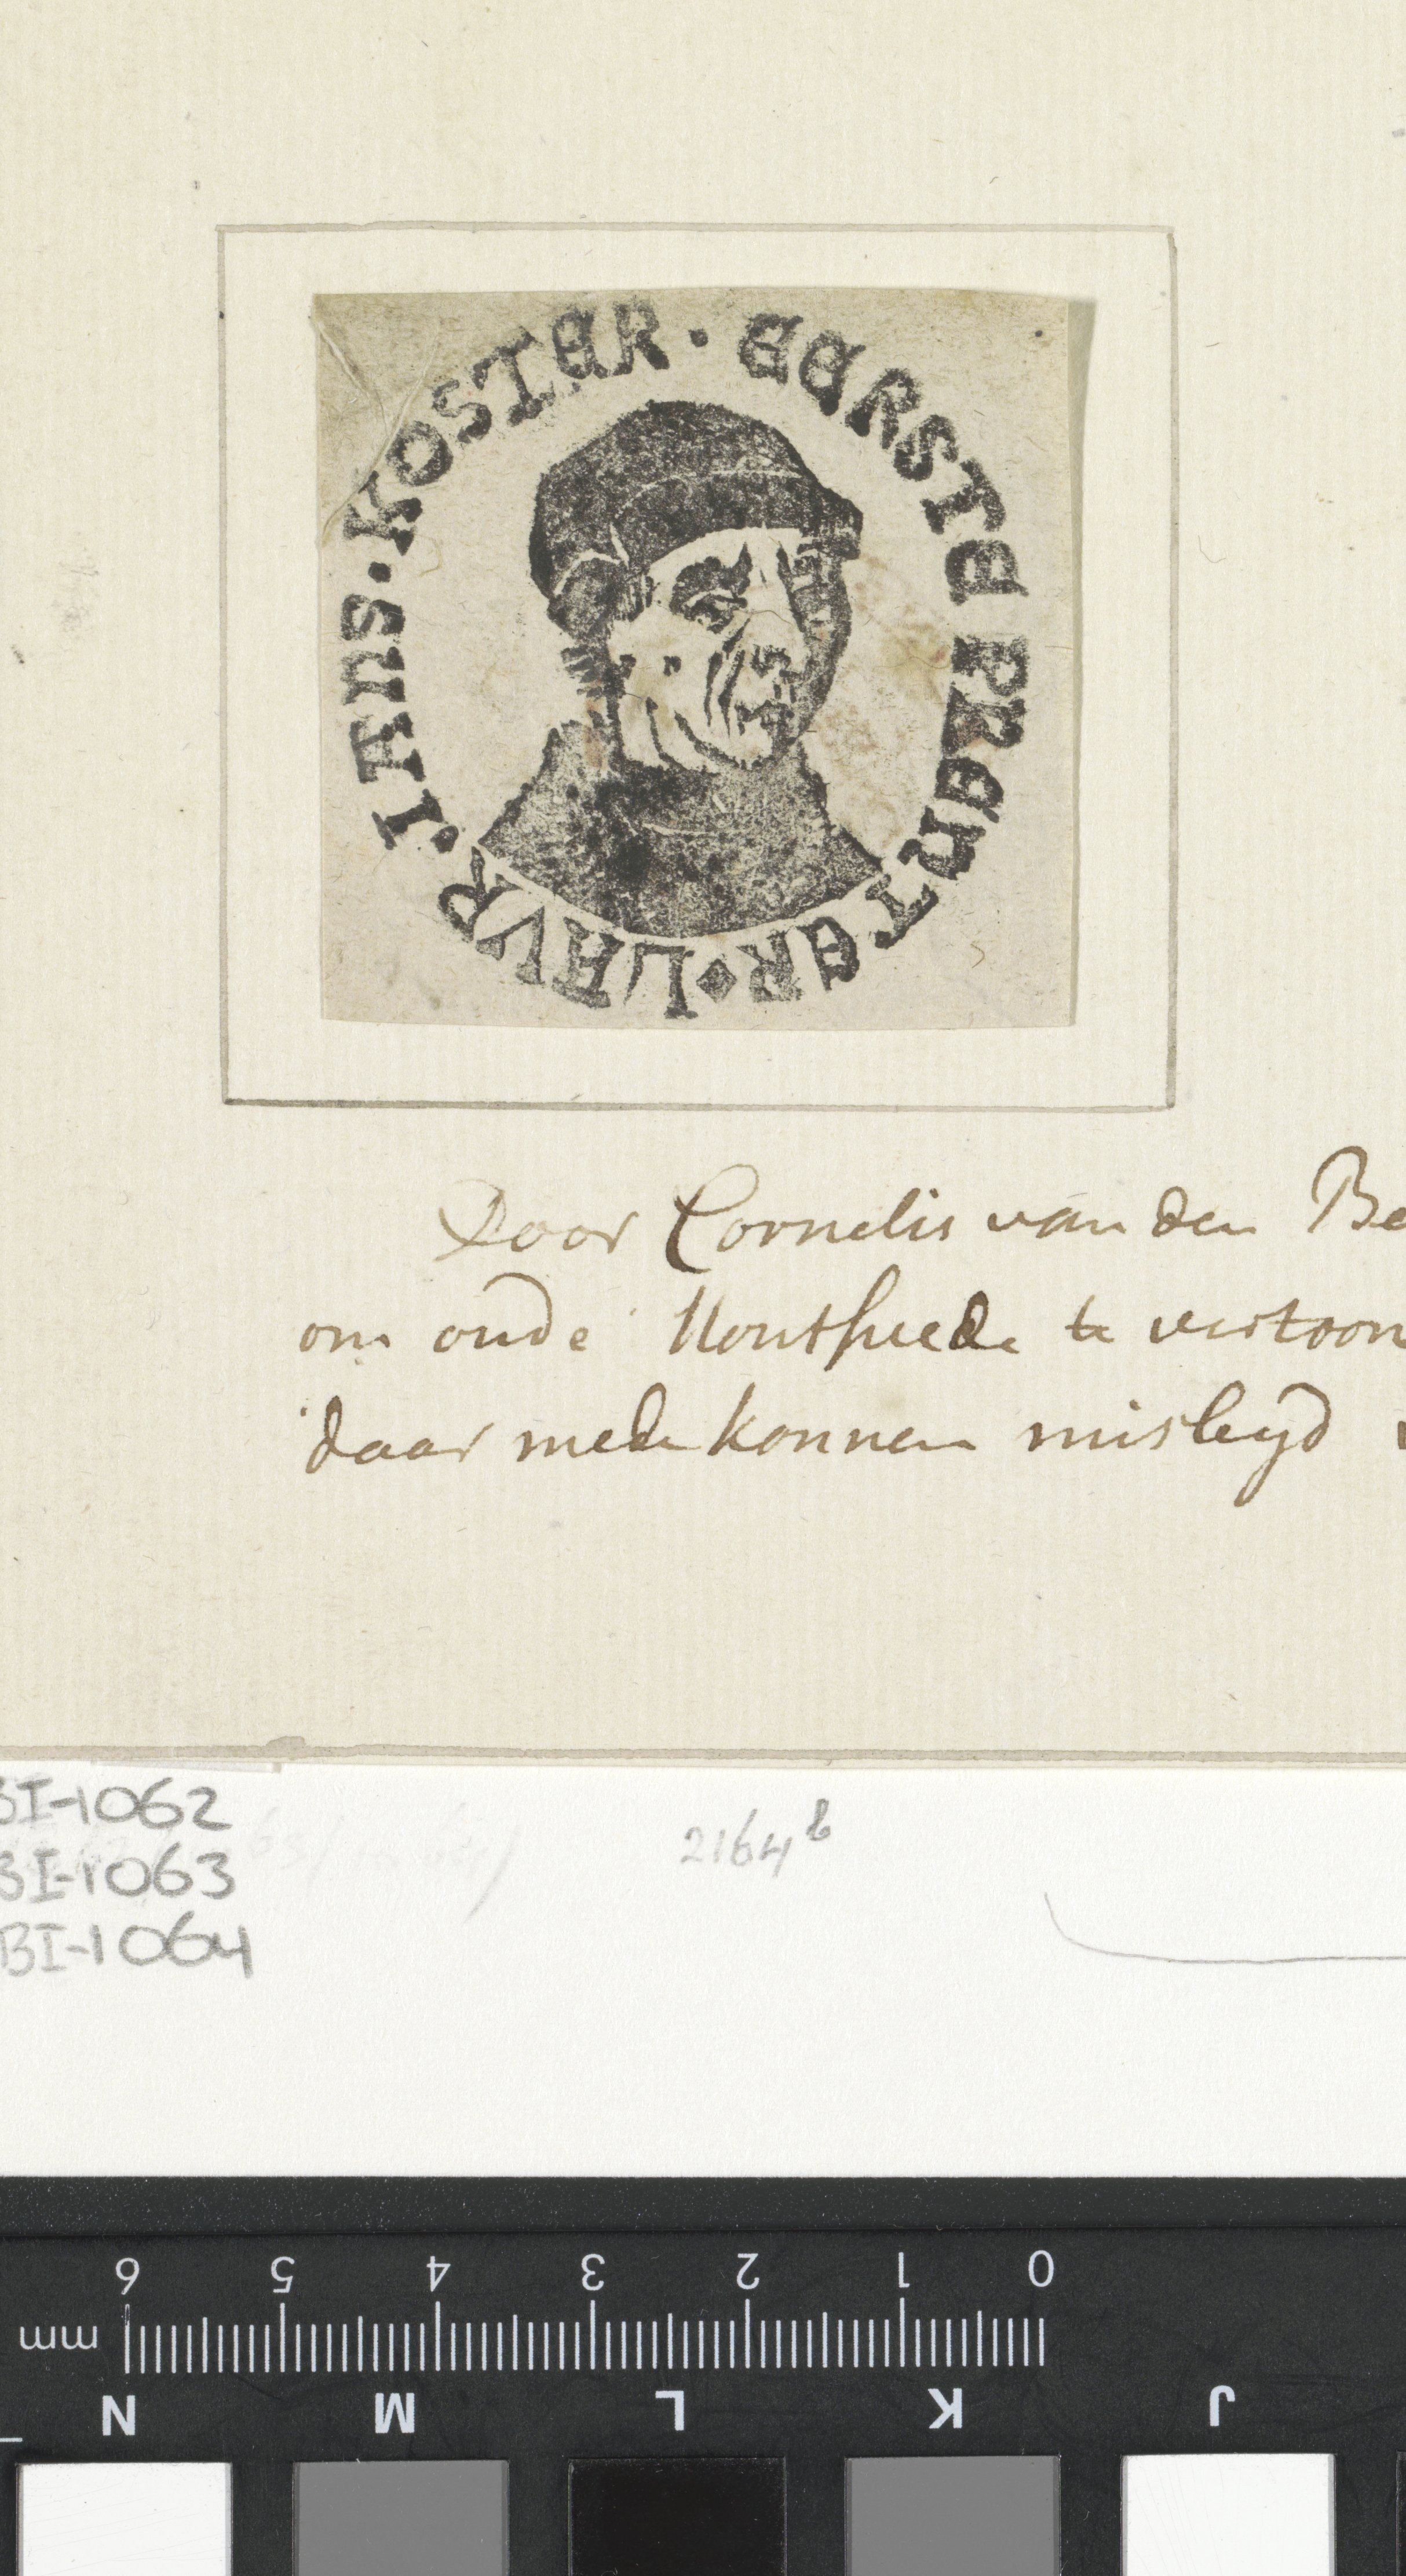 LAVR. JANS. KOSTER. EERSTE PRENTER
Door Cornelis van den Be
om oude Hontsnede te vertoon
daar mede konnen misleyd
BI-1062
BI-1063
BI-1064
2164b
6 5 4 3 2 1 0
mm
N M L K J